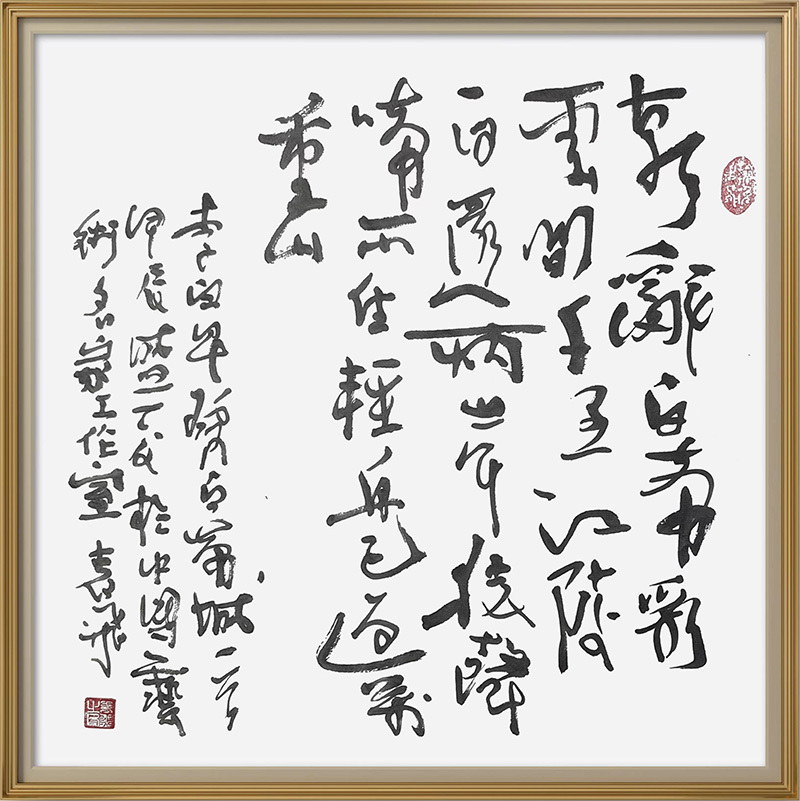 朝辭白帝彩
雲間千里江陵
一日還兩岸猿聲
啼不住輕舟已過萬
重山
李白早發白帝城一首
甲辰於中國藝
術名家工作室